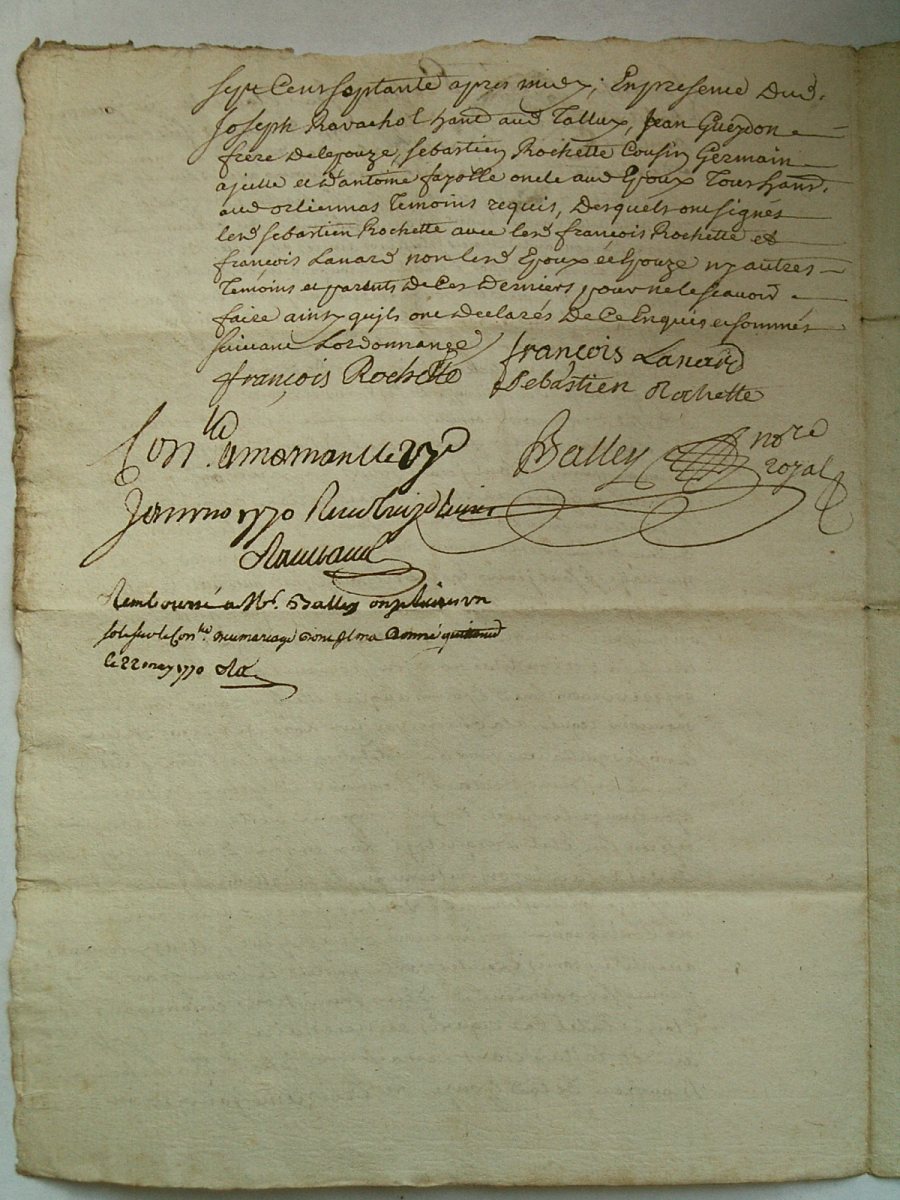 sept Cent septante apres midy; En presence Dud.
Joseph Ravachol hant aud Tallux, Jean Gueydon
frere Delepouze, Sebastien Rochette Cousin Germain
ajcelle et d'antoine fayolle oncle aud Epoux Tous hant.
aud orliennas temoins requis, Desquels ont signés
led Sebastien Rochette avec led françois Rochette et
françois Lanard non led Epoux et Epouze ny autres
Temoins et parents De Ces Derniers pour ne le scavoir
faire ainsy quils ont Declarés De Ce Enquis et sommés
suivant Lordonnance
françois Lanard
françois Rochette Sebastien Rochette
Con.lé a mornant le 27e
Balley nore
royal
Janvier 1770 Recu treize livres
Remboursé a Mr. Balley onze livres un
sols sur le Con.lle du mariage dont il m'a Donné quittance
le 22 may 1770